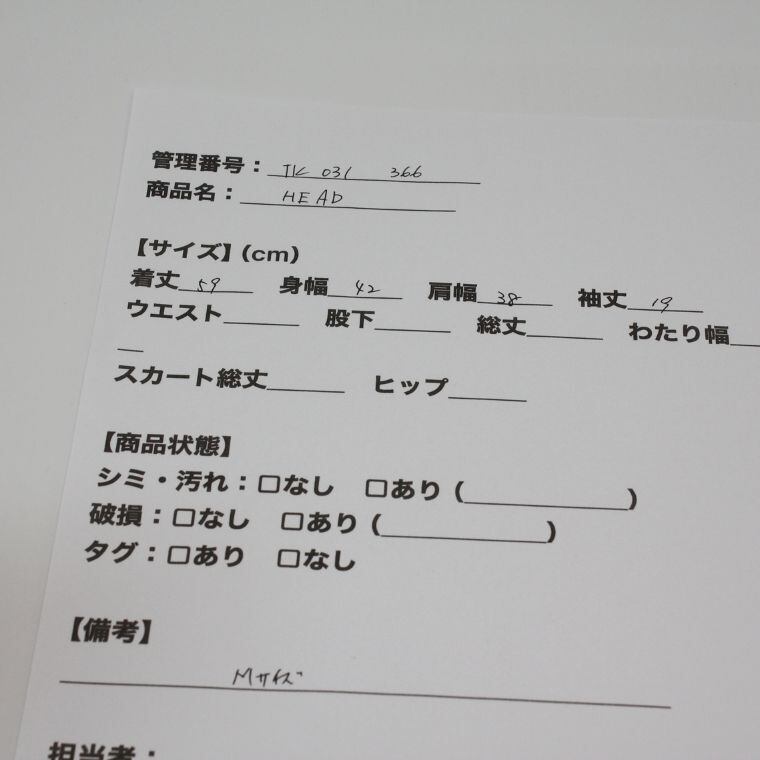 管理番号：TK 031 366
商品名：HEAD
【サイズ】(cm)
着丈 59 身幅 42 肩幅 38 袖丈 19
ウエスト 股下 総丈 わたり幅
スカート総丈 ヒップ
【商品状態】
シミ・汚れ：□なし □あり ( )
破損：□なし □あり ( )
タグ：□あり □なし
【備考】
Mサイズ
担当者：